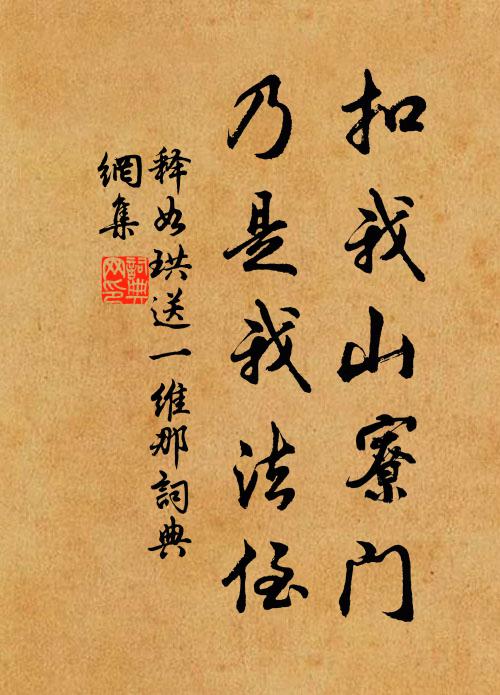 扣我山寮门
乃是我法侄
释如珙送一维那詞典
網集
詞典网印